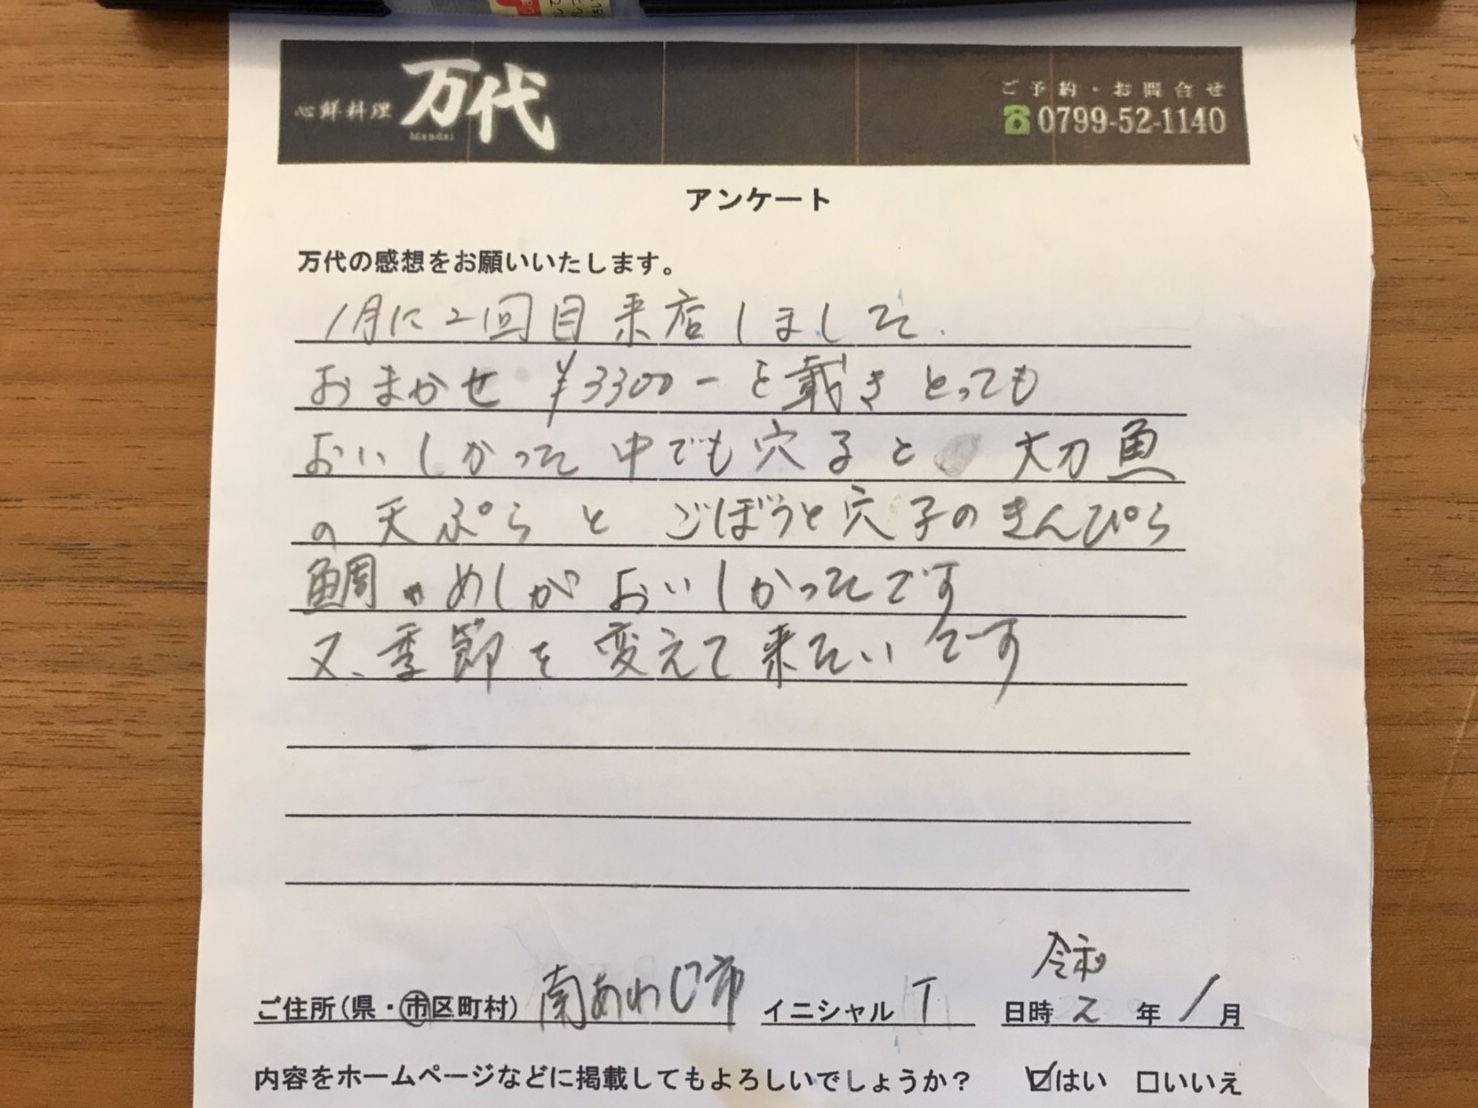 心鮮料理 万代
Mandai
ご予約・お問合せ
0799-52-1140
アンケート
万代の感想をお願いいたします。
1月に2回目来店しました.
おまかせ ¥3300ーを戴きとっても
おいしかった 中でも穴ると 太刀魚
の天ぷらと ごぼうと穴子のきんぴら
鯛めしがおいしかったです
又、季節を変えて来たいです
ご住所(県・市区町村) 南あわじ市 イニシャル T 日時 令和 2 年 1 月
内容をホームページなどに掲載してもよろしいでしょうか? ☑はい □いいえ